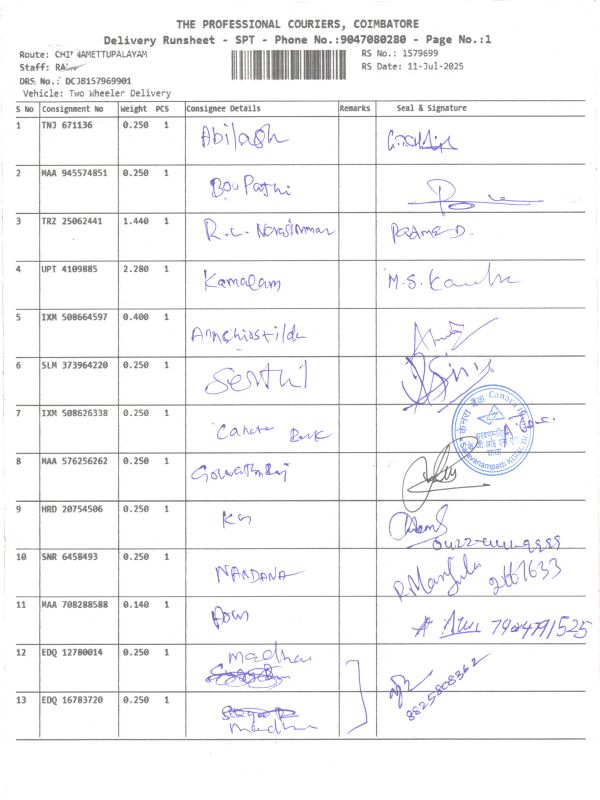 THE PROFESSIONAL COURIERS, COIMBATORE
Delivery Runsheet - SPT - Phone No.:9047080280 - Page No.:1
Route: CHINNAMETTUPALAYAM
RS No.: 1579699
Staff:
RS Date: 11-Jul-2025
DRS No.: DCJ8157969901
Vehicle: Two Wheeler Delivery
S No Consignment No Weight PCS Consignee Details Remarks Seal & Signature
1 TNJ 671136 0.250 1 Abilash
2 MAA 945574851 0.250 1 Boupathi
3 TRZ 25062441 1.440 1 R.C. Narasimman
4 UPT 4109885 2.280 1 Kamalam M.S.
5 IXM 508664597 0.400 1
6 SLM 373964220 0.250 1 Senthil
7 IXM 508626338 0.250 1 Canara Bank
8 MAA 576256262 0.250 1
9 HRD 20754506 0.250 1
10 SNR 6458493 0.250 1 NANDANA R. Manjula
2661633
11 MAA 708288588 0.140 1
12 EDQ 12780014 0.250 1 madhu
8825808362
13 EDQ 16783720 0.250 1
madhu